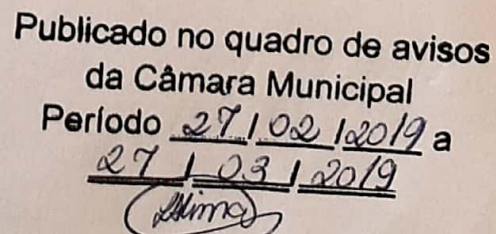 Publicado no quadro de avisos
da Câmara Municipal
Período 27/02/2019 a
27/03/2019